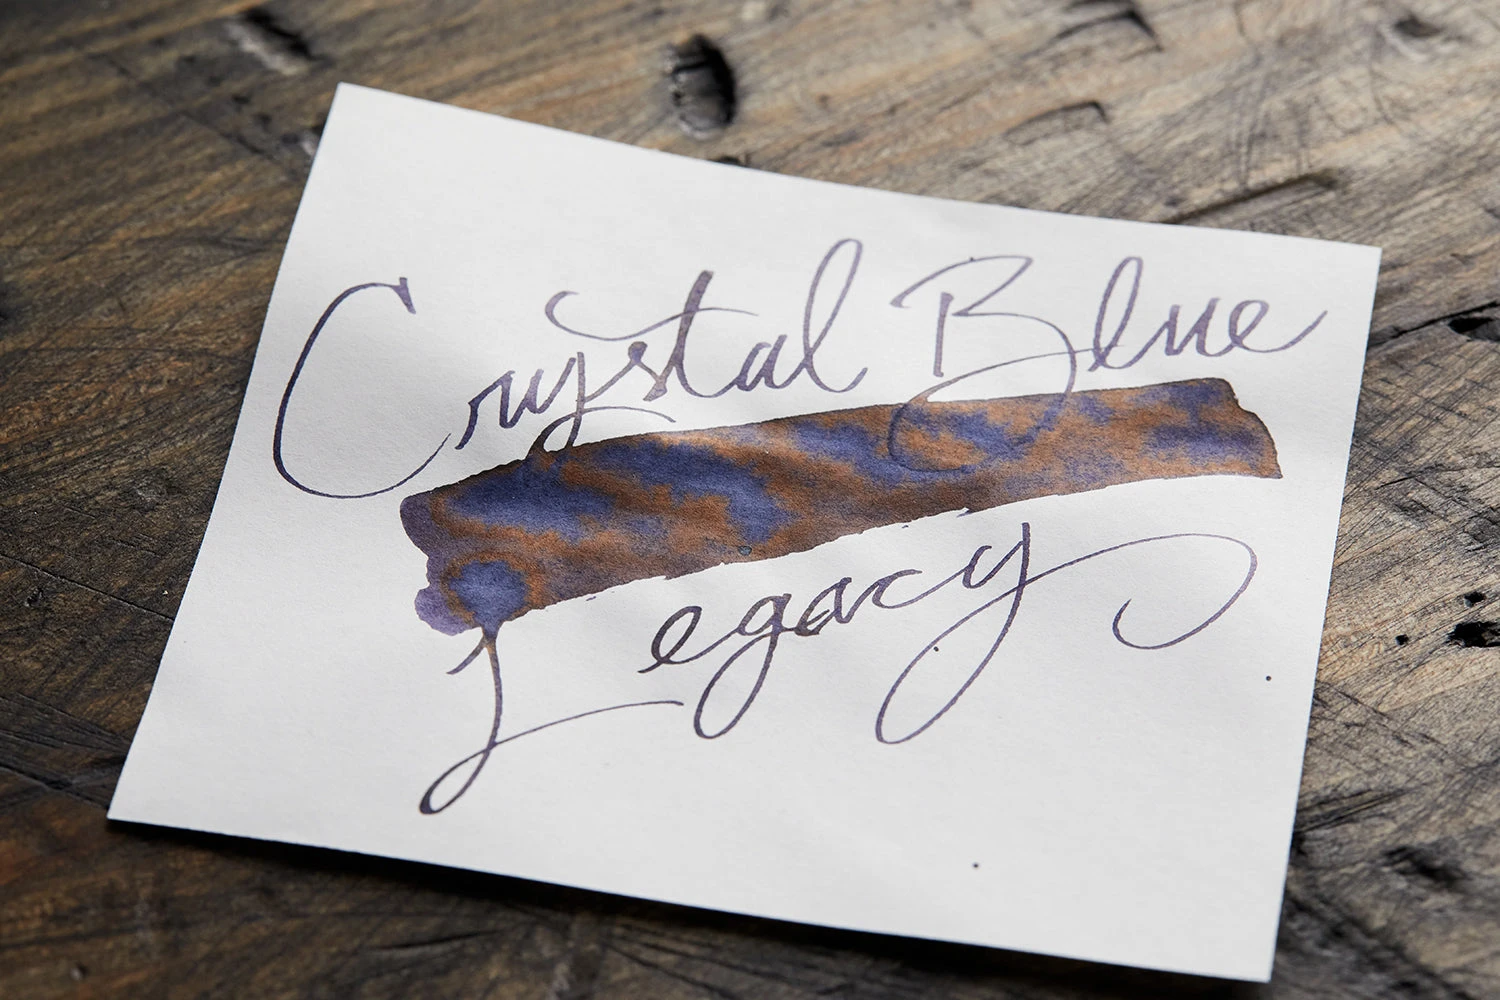 Crystal Blue
Legacy